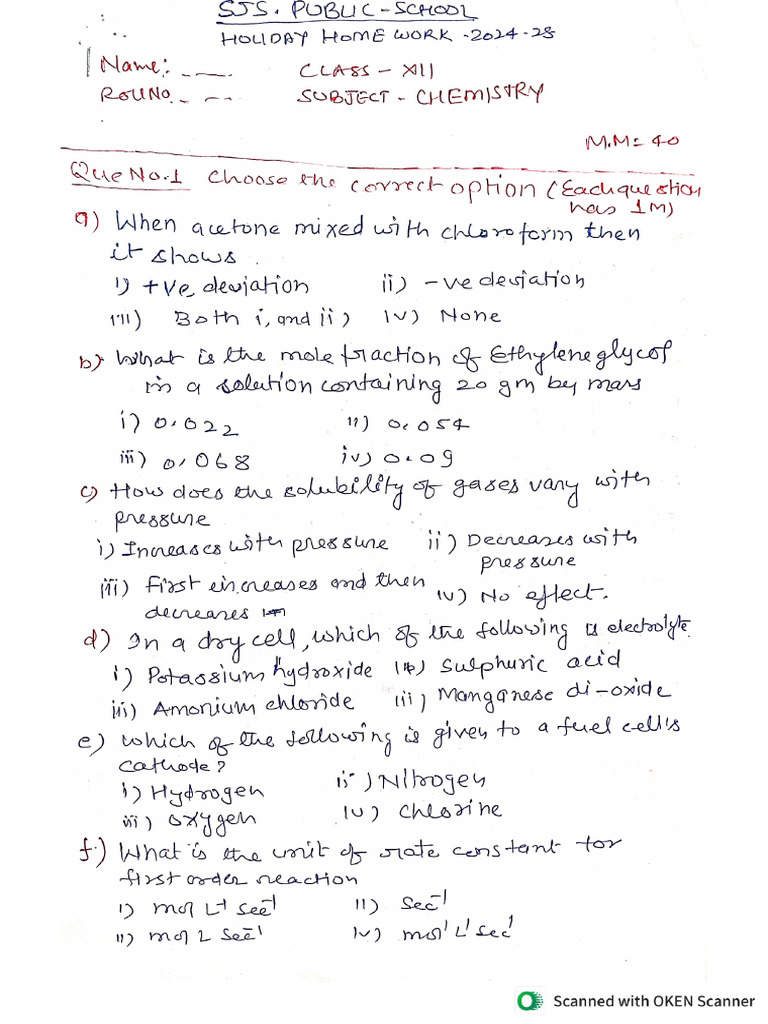 SJS. PUBLIC-SCHOOL
HOLIDAY HOME WORK-2024-25
Name:- ---- CLASS - XII
ROLLNO.- -- SUBJECT - CHEMISTRY
M.M= 40
Que No.1 Choose the correct option (Each question has 1M)
a) When acetone mixed with chloroform then
it shows.
i) +ve deviation ii) -ve deviation
iii) Both i, and ii) iv) None
b) What is the mole fraction of Ethylene glycol
in a solution containing 20 gm by mass
i) 0.022 ii) 0.054
iii) 0.068 iv) 0.09
c) How does the solubility of gases vary with
pressure
i) Increases with pressure ii) Decreases with
pressure
iii) First increases and then iv) No effect.
decreases
d) In a dry cell, which of the following is electrolyte
i) Potassium hydroxide ii) Sulphuric acid
iii) Amonium chloride iii) Manganese di-oxide
e) Which of the following is given to a fuel cell's
cathode?
i) Hydrogen ii) Nitrogen
iii) Oxygen iv) Chlorine
f) What is the unit of rate constant for
first order reaction
i) mol L⁻¹ sec⁻¹ ii) Sec⁻¹
ii) mol L sec⁻¹ iv) mol⁻¹ L⁻¹ sec⁻¹
Scanned with OKEN Scanner